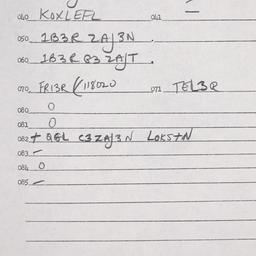 040 KOXLEEL 041 —
050 1B3R ZAJ3N .
060 1B3R B3 ZAJT .
070 FRI3R (118020 071 TEL3R
080 O
081 O
082 + QGL C3ZAJ3N LOKSTN
083 —
084 O
085 —